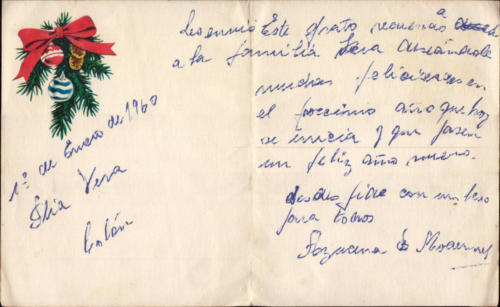 Les envio Este grato recuerdo a
a la familia Vera deseándole
muchas felicidades en
el procsimo año que hoy
se inicia y que pasen
un feliz año nuevo.
desde con un beso
para todos
1º de Enero de 1960
Elia Vera
Colón